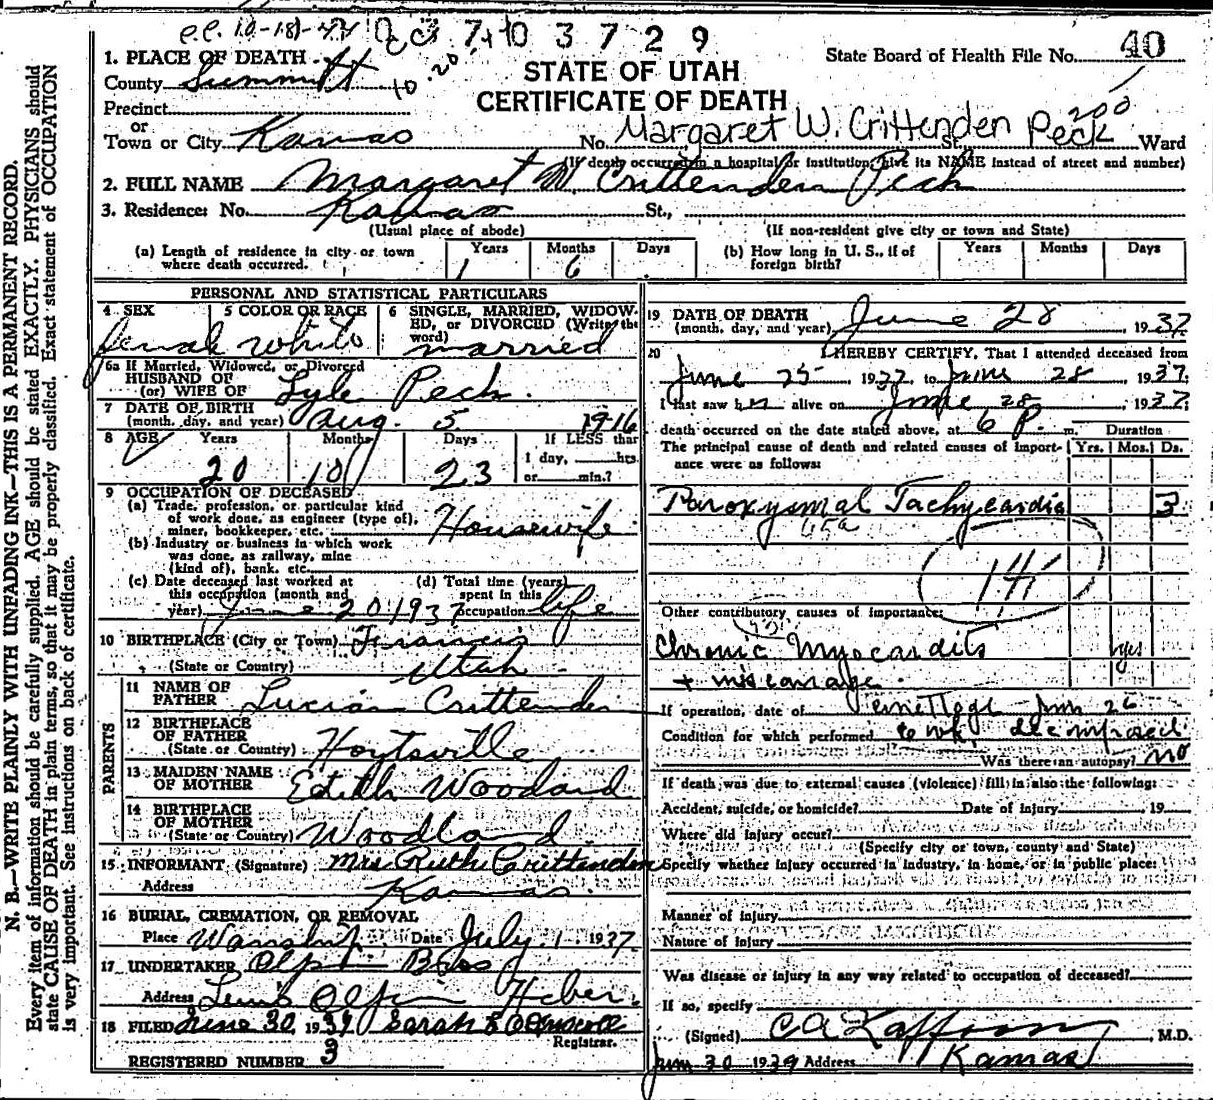 3 7 2 9
State Board of Health File No. 40
1. PLACE OF DEATH
STATE OF UTAH
County Summitt
10.20
CERTIFICATE OF DEATH
Precinct
200
or
Town or City Kamas No. Margaret W. Crittenden Peck St., Ward
(If death occurred in a hospital or institution, give its NAME instead of street and number)
2. FULL NAME Margaret W Crittenden Peck
3. Residence: No. Kamas St.,
(Usual place of abode) (If non-resident give city or town and State)
(a) Length of residence in city or town where death occurred. Years 1 Months 6 Days
(b) How long in U. S., if of foreign birth? Years Months Days
PERSONAL AND STATISTICAL PARTICULARS
4 SEX female
5 COLOR OR RACE white
6 SINGLE, MARRIED, WIDOWED, or DIVORCED (Write the word) married
6a If Married, Widowed, or Divorced
HUSBAND OF
(or) WIFE OF Lyle Peck.
7 DATE OF BIRTH
(month, day, and year) Aug. 5 1916
8 AGE Years 20 Months 10 Days 23
If LESS than
1 day, hrs.
or min.?
9 OCCUPATION OF DECEASED
(a) Trade, profession, or particular kind
of work done, as engineer (type of),
miner, bookkeeper, etc. Housewife
(b) Industry or business in which work
was done, as railway, mine
(kind of), bank, etc.
(c) Date deceased last worked at
this occupation (month and
year) June 20 1937
(d) Total time (years)
spent in this
occupation life
10 BIRTHPLACE (City or Town) Francis
(State or Country) Utah
PARENTS
11 NAME OF
FATHER Lucian Crittenden
12 BIRTHPLACE
OF FATHER
(State or Country) Hoytsville
13 MAIDEN NAME
OF MOTHER Edith Woodard
14 BIRTHPLACE
OF MOTHER
(State or Country) Woodland
15 INFORMANT (Signature) Mrs. Ruth Crittenden
Address Kamas.
16 BURIAL, CREMATION, OR REMOVAL
Place Wanship Date July 1 1937
17 UNDERTAKER Olpin Bros
Address Heber.
18 FILED June 30 19 Sarah
Registrar.
REGISTERED NUMBER 3
19 DATE OF DEATH
(month, day, and year) June 28, 1937
20 I HEREBY CERTIFY, That I attended deceased from
June 25 1937, to June 28, 1937
I last saw her alive on June 28, 1937
death occurred on the date stated above, at 6 P. m.
The principal cause of death and related causes of importance were as follows:
Duration
Yrs. Mos. Ds.
Paroxysmal Tachycardia 3
Other contributory causes of importance:
Chronic Myocardits yrs
+ miscarriage.
If operation, date of June 26
Condition for which performed decomposed
Was there an autopsy? no
If death was due to external causes (violence) fill in also the following:
Accident, suicide, or homicide? Date of injury 19
Where did injury occur?
(Specify city or town, county and State)
Specify whether injury occurred in industry, in home, or in public place:
Manner of injury
Nature of injury
Was disease or injury in any way related to occupation of deceased?
If so, specify
(Signed) M.D.
June 30 1939 Address Kamas
N. B.—WRITE PLAINLY WITH UNFADING INK—THIS IS A PERMANENT RECORD.
Every item of information should be carefully supplied. AGE should be stated EXACTLY. PHYSICIANS should
state CAUSE OF DEATH in plain terms, so that it may be properly classified. Exact statement of OCCUPATION
is very important. See instructions on back of certificate.